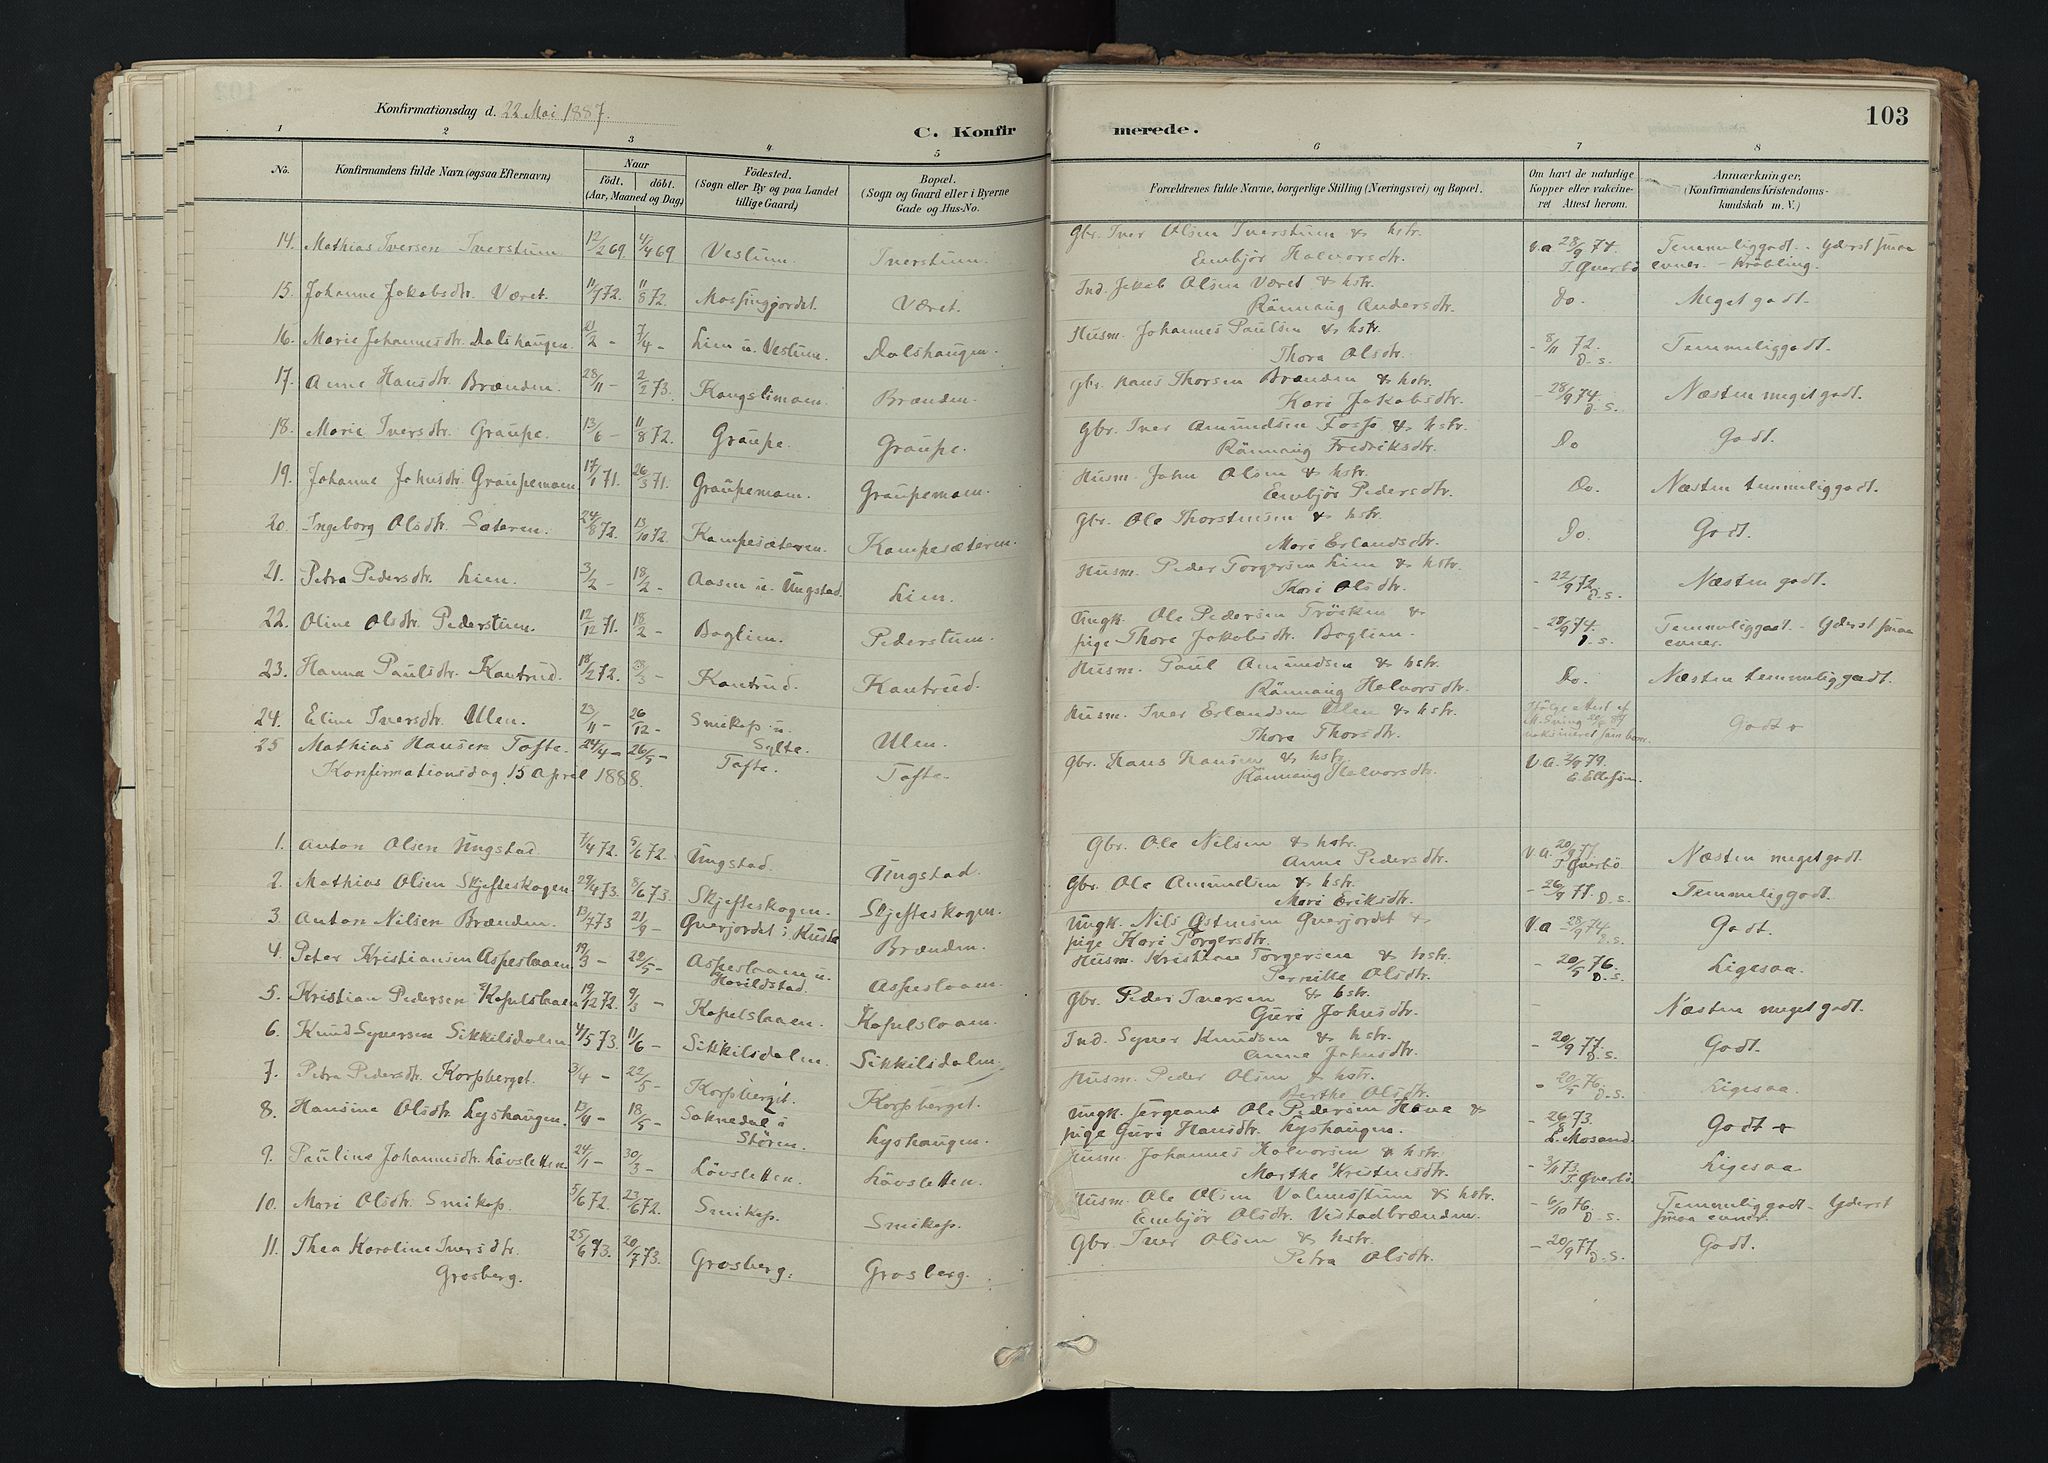 103
Konfirmationsdag d. 22 Mai 1887.
C. Konfirmerede.
1 2 3 4 5 6 7 8
No. Konfirmandens fulde Navn (ogsaa Efternavn) Naar födt. döbt. (Aar, Maaned og Dag) Födested. (Sogn eller By og paa Landet tillige Gaard) Bopæl. (Sogn og Gaard eller i Byerne Gade og Hus-No. Forældrenes fulde Navne, borgerlige Stilling (Næringsvei) og Bopæl. Om havt de naturlige Kopper eller vakcineret Attest herom. Anmærkninger. (Konfirmandens Kristendomskundskab m. V.)
14. Mathias Iversen Iverstuen 12/2 69. 4/4 69 Vestum. Iverstuen. Gbr. Iver Olsen Iverstuen & hstr. Embjör Halvorsdtr. V.a 28/9 74. T. Qverbö Temmeliggodt - Yderst smaa evner. - Kröbling.
15. Johanne Jakobsdtr. Været. 11/7 72. 11/8 72. Været. Ind. Jakob Olsen Været & hstr. Rönnaug Andersdtr. Do. Meget godt.
16. Marie Johannesdtr. Dalshaugen. 21/2 - 7/4 - Lien u. Vestum. Dalshaugen. Husm. Johannes Paulsen & hstr. Thora Olsdtr. - 8/11 72. D.s. Temmeliggodt.
17. Anne Hansdtr. Brænden. 28/11 - 2/2 73. Kongslimoen. Brænden. Gbr. Hans Thorsen Brænden & hstr. Kari Jakobsdtr. - 28/9 74. D.s. Næsten meget godt.
18. Marie Iversdtr. Graupe. 13/6 - 11/8 72. Graupe. Graupe. Gbr. Iver Amundsen Fosso & hstr. Rönnaug Fredriksdtr. Do Godt.
19. Johanne Johnsdtr. Graupemoen 17/1 71. 26/3 71. Graupemoen. Graupemoen. Husm. John Olsen & hstr. Embjör Pedersdtr. Do. Næsten temmeliggodt.
20. Ingeborg Olsdtr. Sæteren. 24/8 72. 13/10 72. Kampesæteren. Kampesæteren. Gbr. Ole Thorstensen & hstr. Mari Erlandsdtr. Do. Godt.
21. Petra Pedersdtr. Lien. 3/2 - 18/2 - Aasen u. Ungstad. Lien. Husm. Peder Torgersen Lien & hstr. Kari Olsdtr. - 22/9 72. D.s. Næsten godt.
22. Oline Olsdtr. Pederstuen. 12/12 71. 18/2 - Boglien. Pederstuen. Ungk. Ole Pedersen Tröeken & pige Thore Jakobsdtr. Boglien. - 28/9 74. D.s. Temmeliggodt - Yderst smaa evner.
23. Hanna Paulsdtr. Kantrud. 18/2 72. Kantrud. Kantrud. Husm. Paul Amundsen & hstr. Rönnaug Halvorsdtr. Do. Næsten temmeliggodt.
24. Eline Iversdtr. Ulen. 23/11 - 26/12 - Smikop u. Sylte. Ulen. Husm. Iver Erlandsen Ulen & hstr. Thora Thorsdtr. Ifölge attest af vaksineret som barn. Godt +
25 Mathias Hansen Tofte. 24/4 - 26/5 - Tofte. Tofte. Gbr. Hans Hansen & hstr. Rönnaug Halvorsdtr. V.a. 2/9 79. E. Ellefsen.
Konfirmationsdag 15 April 1888.
1. Anton Olsen Ungstad. 7/4 72. 9/6 72. Ungstad. Ungstad. Gbr. Ole Nilsen & hstr. Anne Pedersdtr. V.A. 20/9 77. T. Qverbö. Næsten meget godt.
2. Mathias Olsen Skjefteskogen. 29/4 73. 8/6 73. Skjefteskogen. Skjefteskogen. Gbr. Ole Amundsen & hstr. Mari Eriksdtr. - 26/9 77. D.s. Temmeliggodt.
3. Anton Nilsen Brænden. 13/7 73 21/9 - Qverjordet i Brænden. Ungk. Nils Östensen Qverjordet & pige Kari Torgersdtr. V.a 28/9 74 D.s. Godt.
4. Peter Kristiansen Aspesloaen 19/3 - 20/5 - Aspesloaen u. Harildstad. Aspesloaen. Husm. Kristian Torgersen & hstr. Pernille Olsdtr. - 20/5 76. D.s. Ligesaa.
5. Kristian Pedersen Kopelsloaen 19/12 72. 9/3 - Kopelsloaen. Kopelsloaen. Gbr. Peder Iversen & hstr. Guri Johnsdtr. - Næsten meget godt.
6. Knud Syversen Sikkilsdalen 4/5 73. 11/6 - Sikkilsdalen. Sikkilsdalen. Ind. Syver Knudsen & hstr. Anne Johnsdtr. - 20/9 77. D.s. Godt.
7. Petra Pedersdtr. Korpberget. 3/4 - 22/5 - Korpberget. Korpberget. Husm. Peder Olsen & hstr. Berthe Olsdtr. - 20/5 76. D.s. Ligesaa.
8. Hansine Olsdtr. Lyshaugen. 13/4 - 18/5 - Soknedal i Stören. Lyshaugen. Ungk. sergeant Ole Pedersen Hove & pige Guri Hansdtr. Lyshaugen. - 26/8 73. L. Mosand. Godt +
9. Pauline Johannesdtr. Lövsletten. 24/1 - 30/3 - Lövsletten. Lövsletten. Husm. Johannes Halvorsen & hstr. Marthe Kristensdtr. - 3/11 73. T. Qverbö Ligesaa
10. Mari Olsdtr. Smikop. 5/6 72. 23/6 72. Smikop. Smikop. Husm. Ole Olsen Valmostuen & hstr. Embjör Olsdtr. Vistadbrænden. - 6/10 76. D.s. Temmeliggodt - Yderst smaa evner.
11. Thea Karoline Iversdtr. Grosberg. 25/6 73. 20/7 73. Grosberg. Grosberg. Gbr. Iver Olsen & hstr. Petra Olsdtr. - 20/9 77. D.s. Godt.